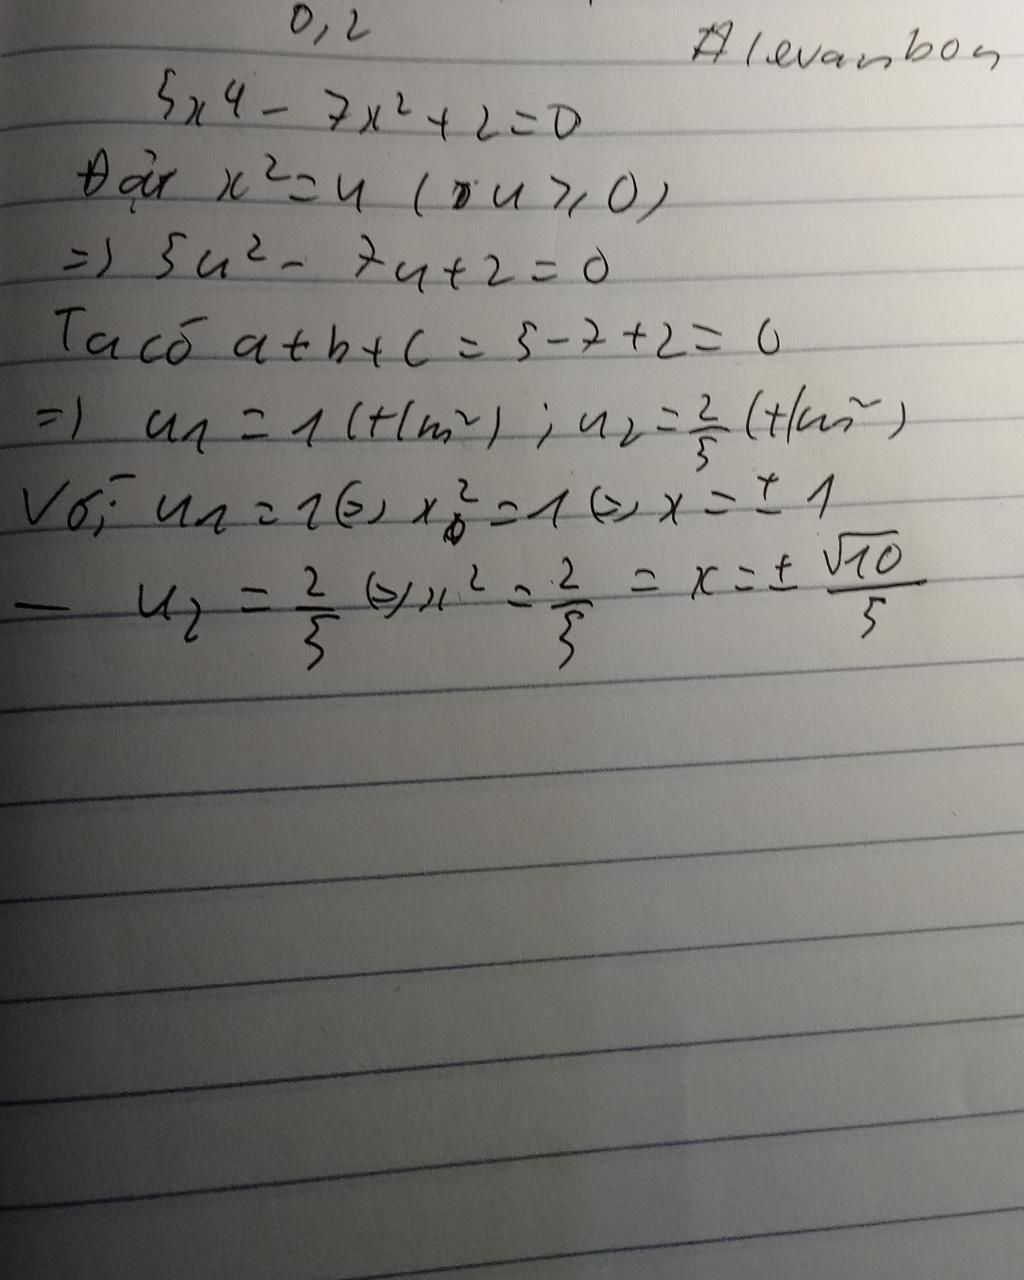 0,2
Alevanbon
5x⁴ - 7x² + 2 = 0
Đặt x² = u (u ⩾ 0)
=) 5u² - 7u + 2 = 0
Ta có a + b + c = 5 - 7 + 2 = 0
=) u₁ = 1 (t/m²) ; u₂ = 2/5 (t/m²)
Với u₁ = 1 (=) x² = 1 (=) x = ± 1
— u₂ = 2/5 (=) x² = 2/5 = x = ± √10/5